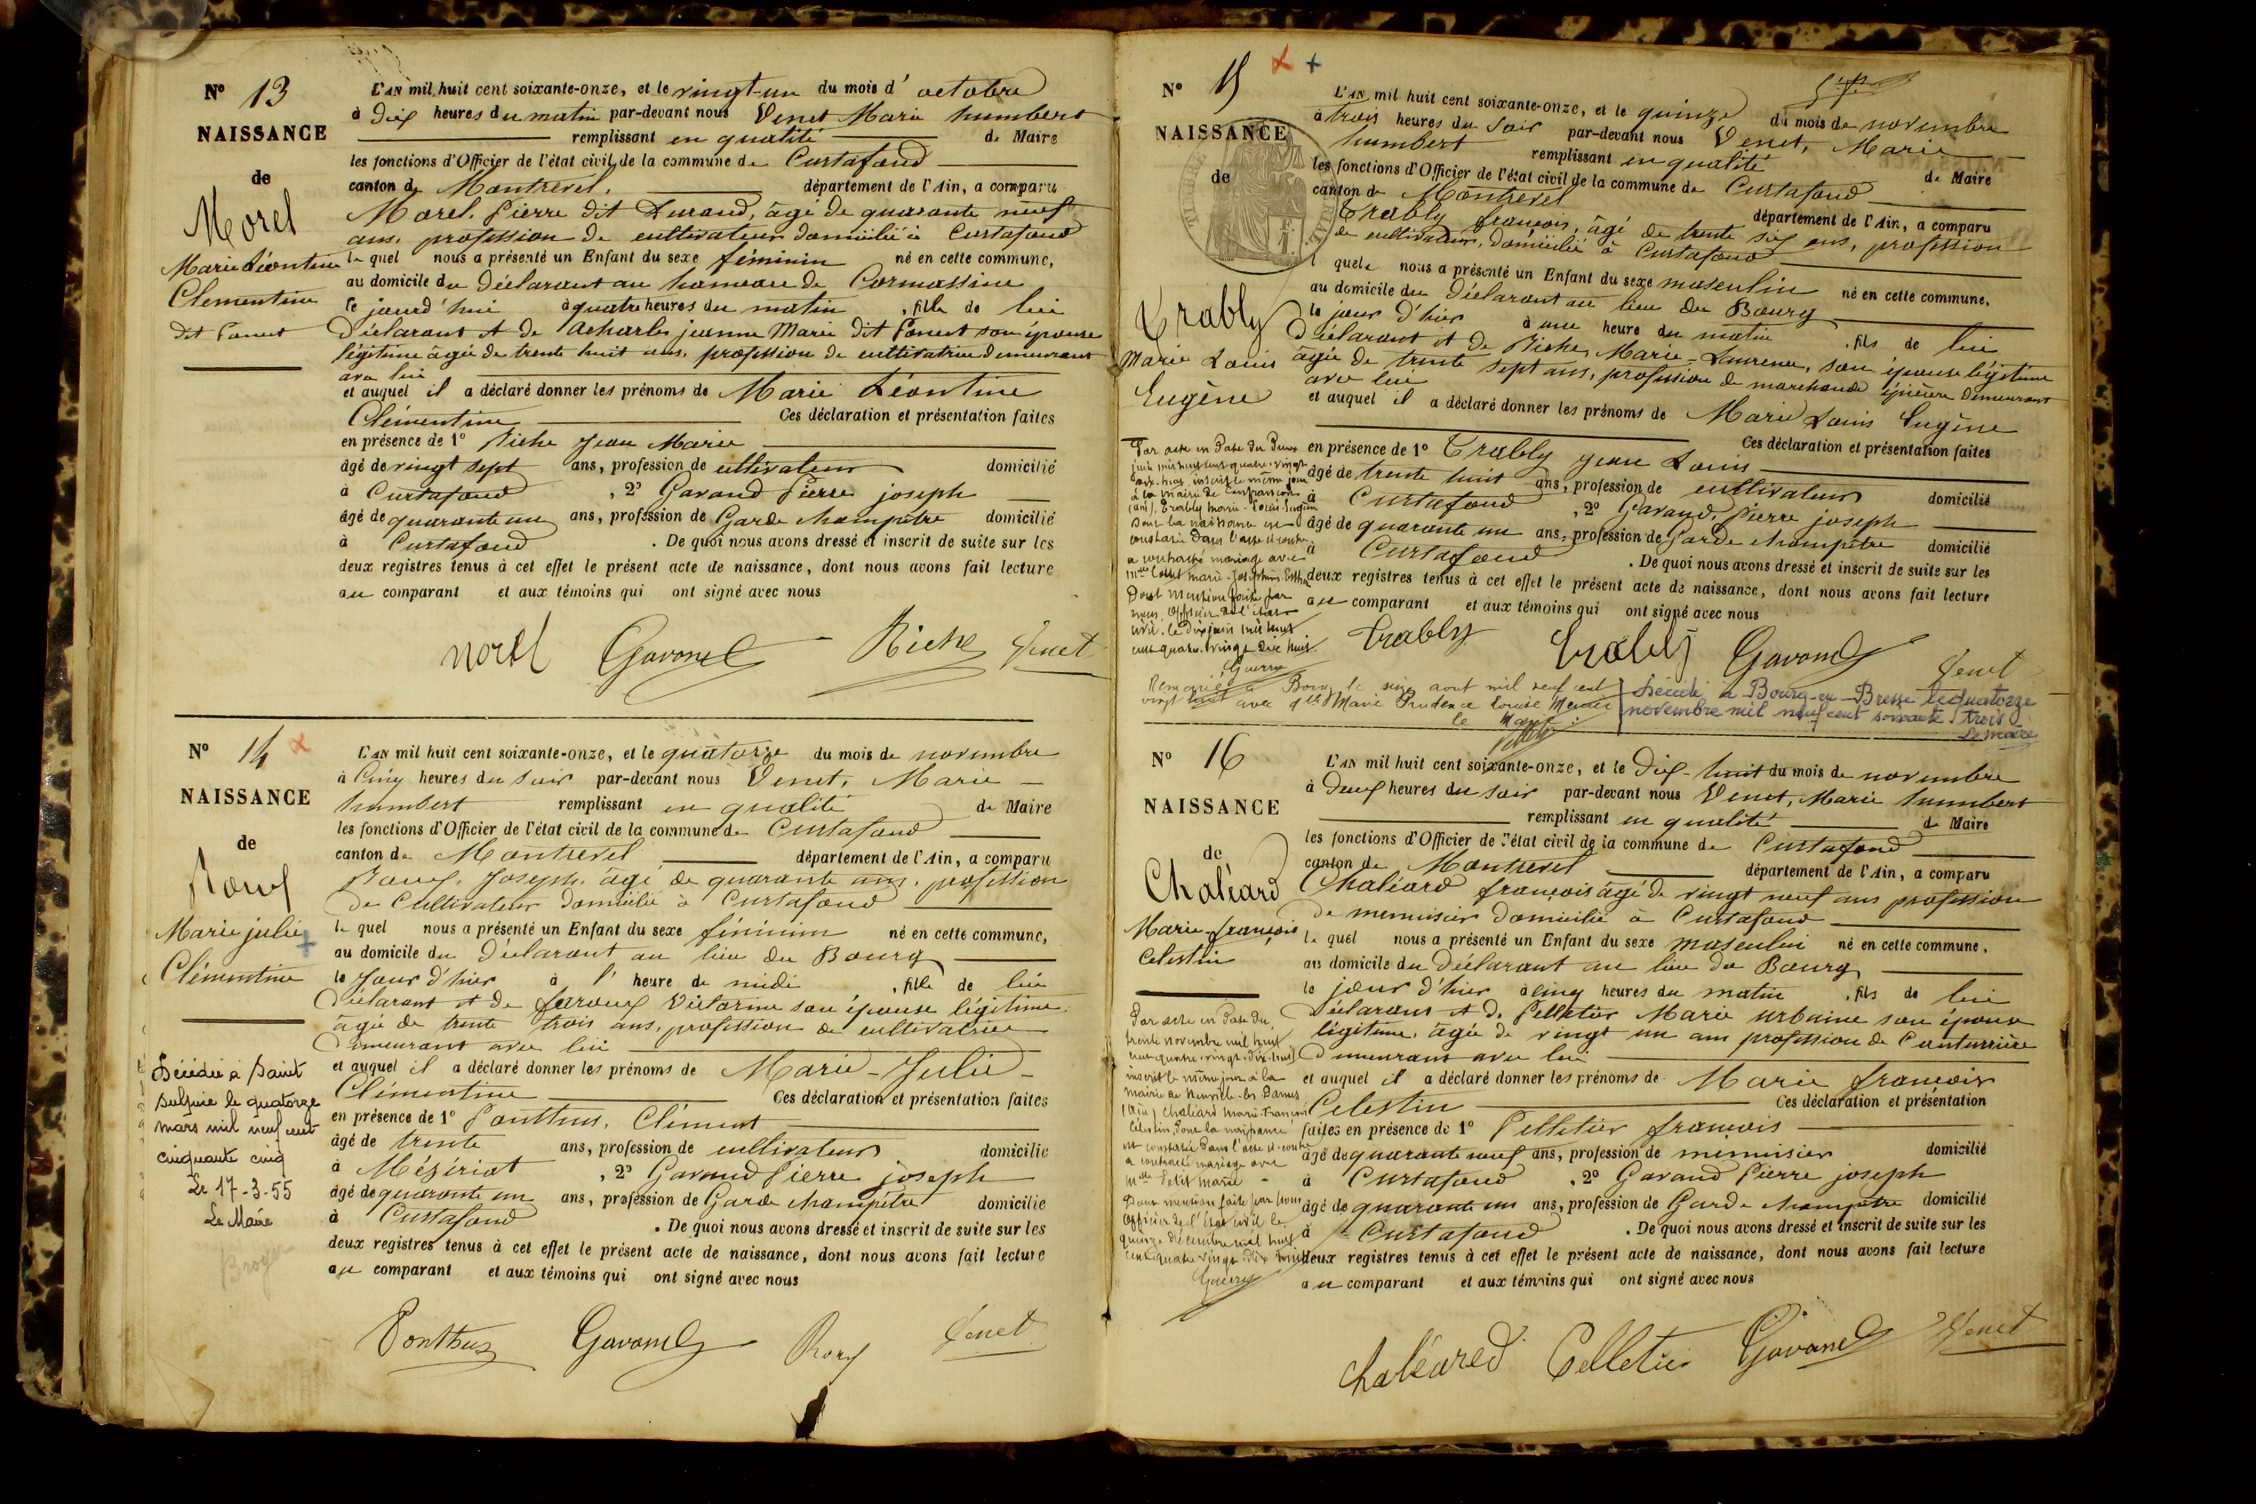 N° 13
NAISSANCE
de
Morel
Marie Léontine
Clementine
dit Ponset
L'AN mil huit cent soixante-onze, et le vingt-un du mois d'octobre
à dix heures du matin par-devant nous Venet Marie humbert
remplissant en qualité de Maire
les fonctions d'Officier de l'état civil de la commune de Curtafond
canton de Montrevel. département de l'Ain, a comparu
Morel, Pierre dit Durand, âgé de quarante neuf
ans, profession de cultivateur domicilié à Curtafond
lequel nous a présenté un Enfant du sexe féminin né en cette commune,
au domicile du déclarant au hameau de Cormassine
le jourd'hui à quatre heures du matin, fille de lui
Déclarant et de jeanne Marie dit Ponset son épouse
légitime âgée de trente huit ans, profession de cultivatrice demeurant
avec lui
et auquel il a déclaré donner les prénoms de Marie Léontine
Clémentine Ces déclaration et présentation faites
en présence de 1° Riche Jean Marie
âgé de vingt sept ans, profession de cultivateur domicilié
à Curtafond, 2° Gavand Pierre joseph
âgé de quarante un ans, profession de Garde champêtre domicilié
à Curtafond. De quoi nous avons dressé et inscrit de suite sur les
deux registres tenus à cet effet le présent acte de naissance, dont nous avons fait lecture
au comparant et aux témoins qui ont signé avec nous
morel Gavand Riche Venet
N° 14
NAISSANCE
de
Rouf
Marie julie
Clémentine
Décédée à Saint
Sulpice le quatorze
mars mil neuf cent
cinquante cinq
Le 17-3-55
Le Maire
L'AN mil huit cent soixante-onze, et le quatorze du mois de novembre
à Cinq heures du soir par-devant nous Venet, Marie
humbert remplissant en qualité de Maire
les fonctions d'Officier de l'état civil de la commune de Curtafond
canton de Montrevel département de l'Ain, a comparu
Joseph, âgé de quarante ans, profession
de Cultivateur domicilié à Curtafond
lequel nous a présenté un Enfant du sexe féminin né en cette commune,
au domicile du Déclarant au lieu du Bourg
le Jour d'hier à l'heure de midi, fille de lui
Déclarant et de Victorine son épouse légitime,
âgée de trente trois ans, profession de cultivatrice
demeurant avec lui
et auquel il a déclaré donner les prénoms de Marie-Julie-
Clémentine Ces déclaration et présentation faites
en présence de 1° Ponthus, Clément
âgé de trente ans, profession de cultivateur domicilié
à Mézériat, 2° Gavand Pierre joseph
âgé de quarante un ans, profession de Garde champêtre domicilié
à Curtafond. De quoi nous avons dressé et inscrit de suite sur les
deux registres tenus à cet effet le présent acte de naissance, dont nous avons fait lecture
au comparant et aux témoins qui ont signé avec nous
Ponthus Gavand Venet
N° 15
NAISSANCE
de
Trably
Marie Louis
Eugène
Par acte en date du deux
juin mil huit cent quatre-vingt
dix-huit, inscrit le même jour
à la mairie de Confrançon
(Ain), Trably Marie-Louis-Eugène
dont la naissance est
constatée dans l'acte ci-contre
a contracté mariage avec
Mlle Marie-Joséphine
Dont mention faite par
nous Officier de l'état
civil, le dix juin mil huit
cent quatre-vingt-dix-huit
Guerry
L'AN mil huit cent soixante-onze, et le quinze du mois de novembre
à trois heures du Soir par-devant nous Venet, Marie
humbert remplissant en qualité de Maire
les fonctions d'Officier de l'état civil de la commune de Curtafond
canton de Montrevel département de l'Ain, a comparu
Trably françois, âgé de trente six ans, profession
de cultivateur, domicilié à Curtafond
lequel nous a présenté un Enfant du sexe masculin né en cette commune.
au domicile du Déclarant au lieu du Bourg
le jour d'hier à une heure du matin, fils de lui
Déclarant et de Riche, Marie-Laurence, son épouse légitime
âgée de trente sept ans, profession de marchande épicière demeurant
avec lui
et auquel il a déclaré donner les prénoms de Marie Louis Eugène
Ces déclaration et présentation faites
en présence de 1° Trably Jean Louis
âgé de trente huit ans, profession de cultivateur domicilié
à Curtafond, 2° Gavand, Pierre joseph
âgé de quarante un ans, profession de Garde champêtre domicilié
à Curtafond. De quoi nous avons dressé et inscrit de suite sur les
deux registres tenus à cet effet le présent acte de naissance, dont nous avons fait lecture
au comparant et aux témoins qui ont signé avec nous
Trably Trably Gavand Venet
Remarié à Bourg le seize août mil neuf cent
vingt huit avec Marie Prudence Louise Mercier
le Maire:
Décédé à Bourg-en-Bresse le quatorze
novembre mil neuf cent soixante trois
Le maire
N° 16
NAISSANCE
de
Chaléard
Marie-françois
Celestin
Par acte en date du
trente novembre mil huit
cent quatre-vingt-dix-huit
inscrit le même jour à la
mairie de Neuville-les-Dames
(Ain) Chaléard Marie-François
Célestin, dont la naissance
est constatée dans l'acte ci-contre
a contracté mariage avec
Mlle Petit Marie -
Dont mention faite par nous
Officier de l'Etat civil le
quinze décembre mil huit
cent quatre vingt dix huit
Guerry
L'AN mil huit cent soixante-onze, et le Dix-huit du mois de novembre
à deux heures du soir par-devant nous Venet, Marie humbert
remplissant en qualité de Maire
les fonctions d'Officier de l'état civil de la commune de Curtafond
canton de Montrevel département de l'Ain, a comparu
Chaléard françois âgé de vingt neuf ans profession
de menuisier domicilié à Curtafond
lequel nous a présenté un Enfant du sexe masculin né en cette commune,
au domicile du Déclarant au lieu du Bourg
le jour d'hier à cinq heures du matin, fils de lui
Déclarant et de Pelletier Marie urbaine son épouse
légitime, âgée de vingt un ans profession de Couturière
Demeurant avec lui
et auquel il a déclaré donner les prénoms de Marie françois
Celestin Ces déclaration et présentation
faites en présence de 1° Pelletier françois
âgé de quarante neuf ans, profession de menuisier domicilié
à Curtafond, 2° Gavand Pierre joseph
âgé de quarante un ans, profession de Garde champêtre domicilié
à Curtafond. De quoi nous avons dressé et inscrit de suite sur les
deux registres tenus à cet effet le présent acte de naissance, dont nous avons fait lecture
au comparant et aux témoins qui ont signé avec nous
chaléared Pelletier Gavand Venet